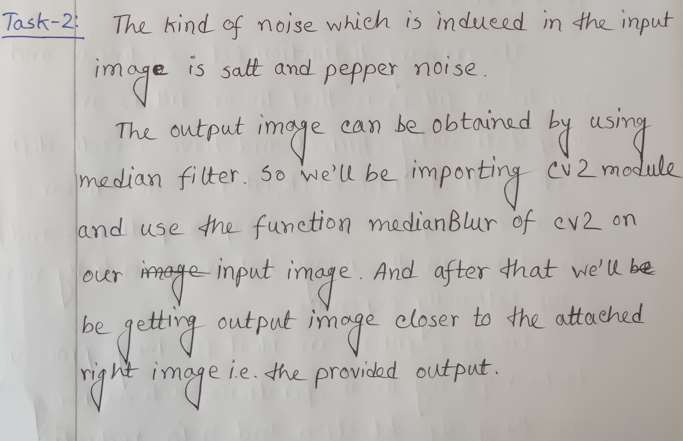 Task-2: The kind of noise which is induced in the input
image is salt and pepper noise.
The output image can be obtained by using
median filter. So we'll be importing cv2 module
and use the function medianBlur of cv2 on
our image input image. And after that we'll be
be getting output image closer to the attached
right image i.e. the provided output.